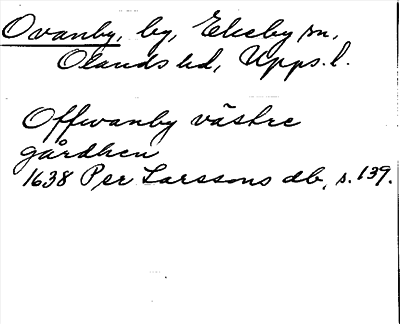 Ovanby, by, Ekeby sn,
Olands hd, Upps. l.
Offwanby västre
gårdhen
1638 Per Larssons db, s. 139.